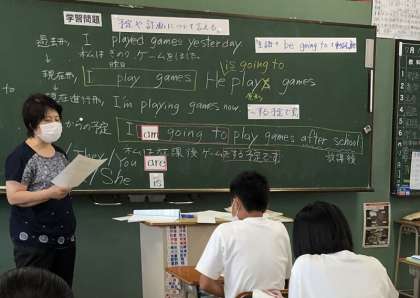 学習問題
予定や計画について言える。
主語+be going to+動詞
過去形
I played games yesterday
私はきのうゲームをした。
昨日
現在形
I play games
is going to
He plays games
現在進行形
I'm playing games now
~する予定です。
からの予定
I am going to play games after school
私は放課後ゲームをする予定です
放課後
They/You are
She is